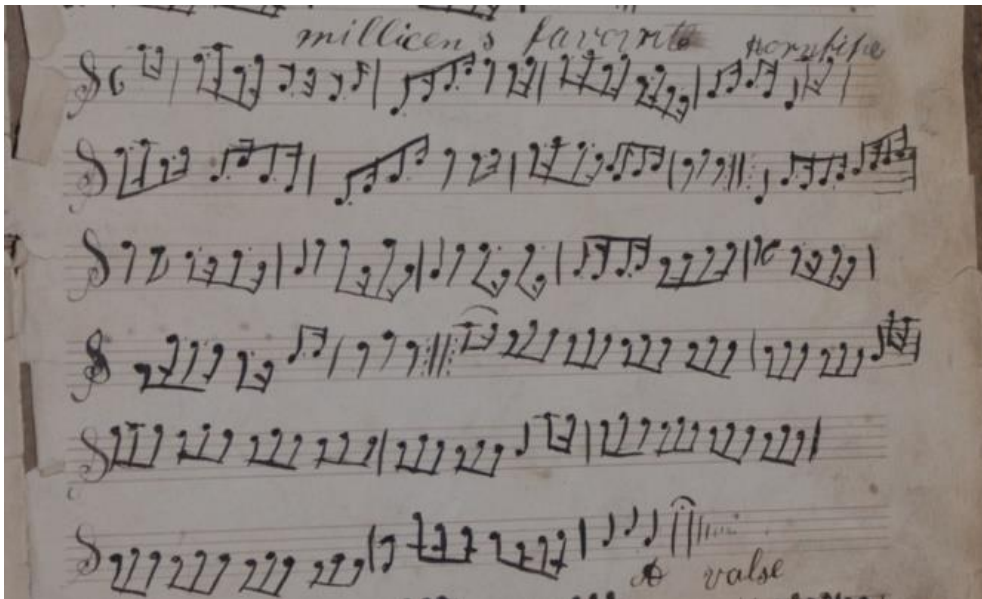 millicen s favornte hornpipe
A valse